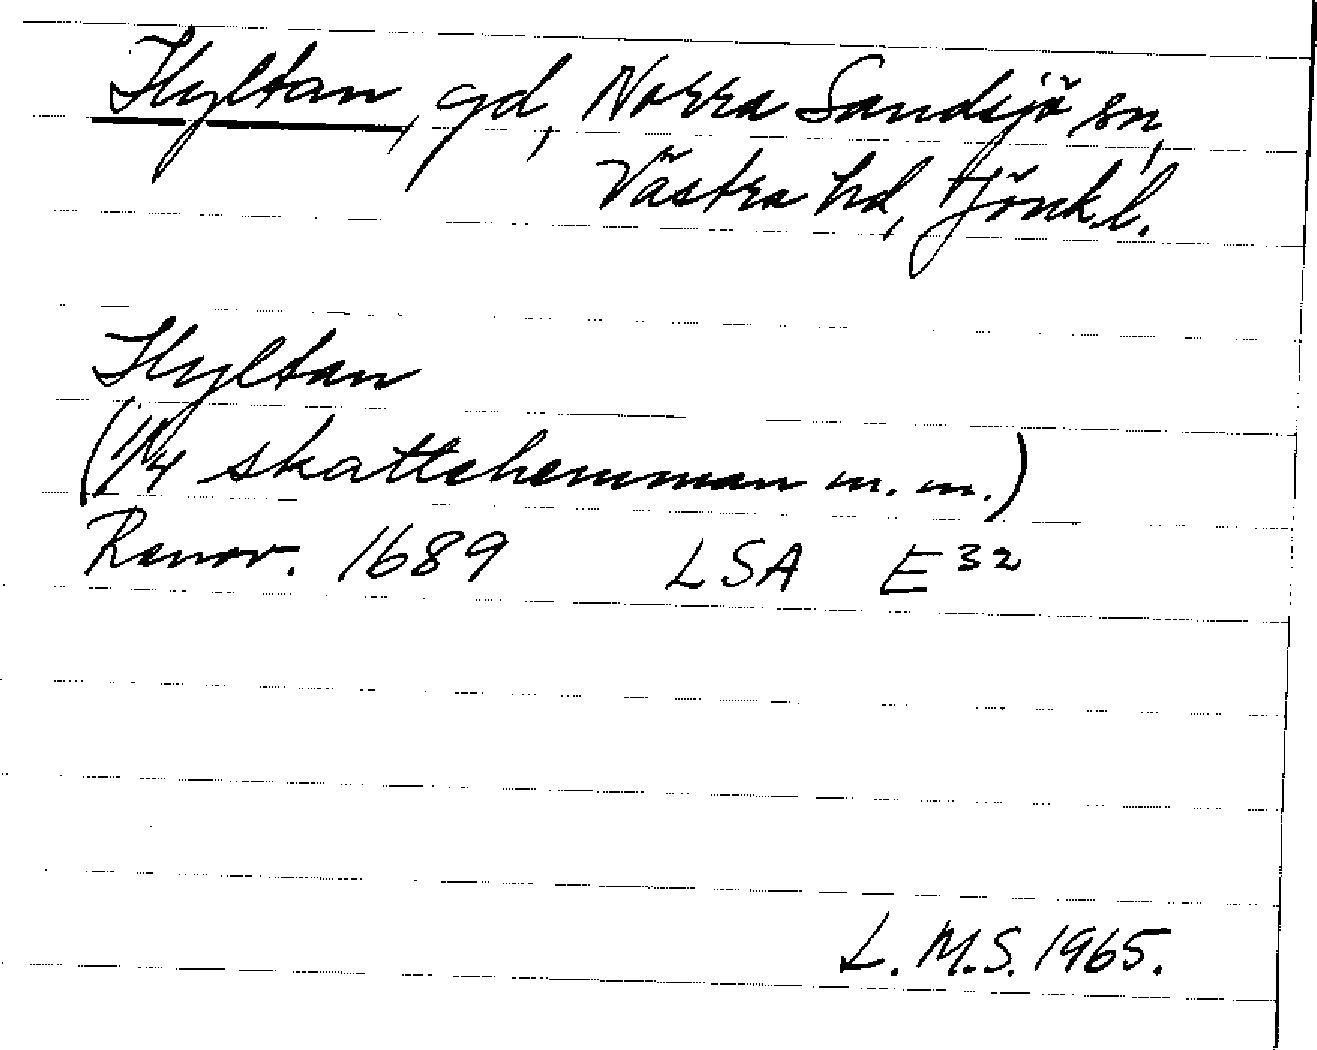 Hyltan, gd, Norra Sandsjö sn,
Västra hd, Jönk.l.
Hyltan
(1/4 skattehemman m.m.)
Renov. 1689 LSA E 32
L.M.S. 1965.